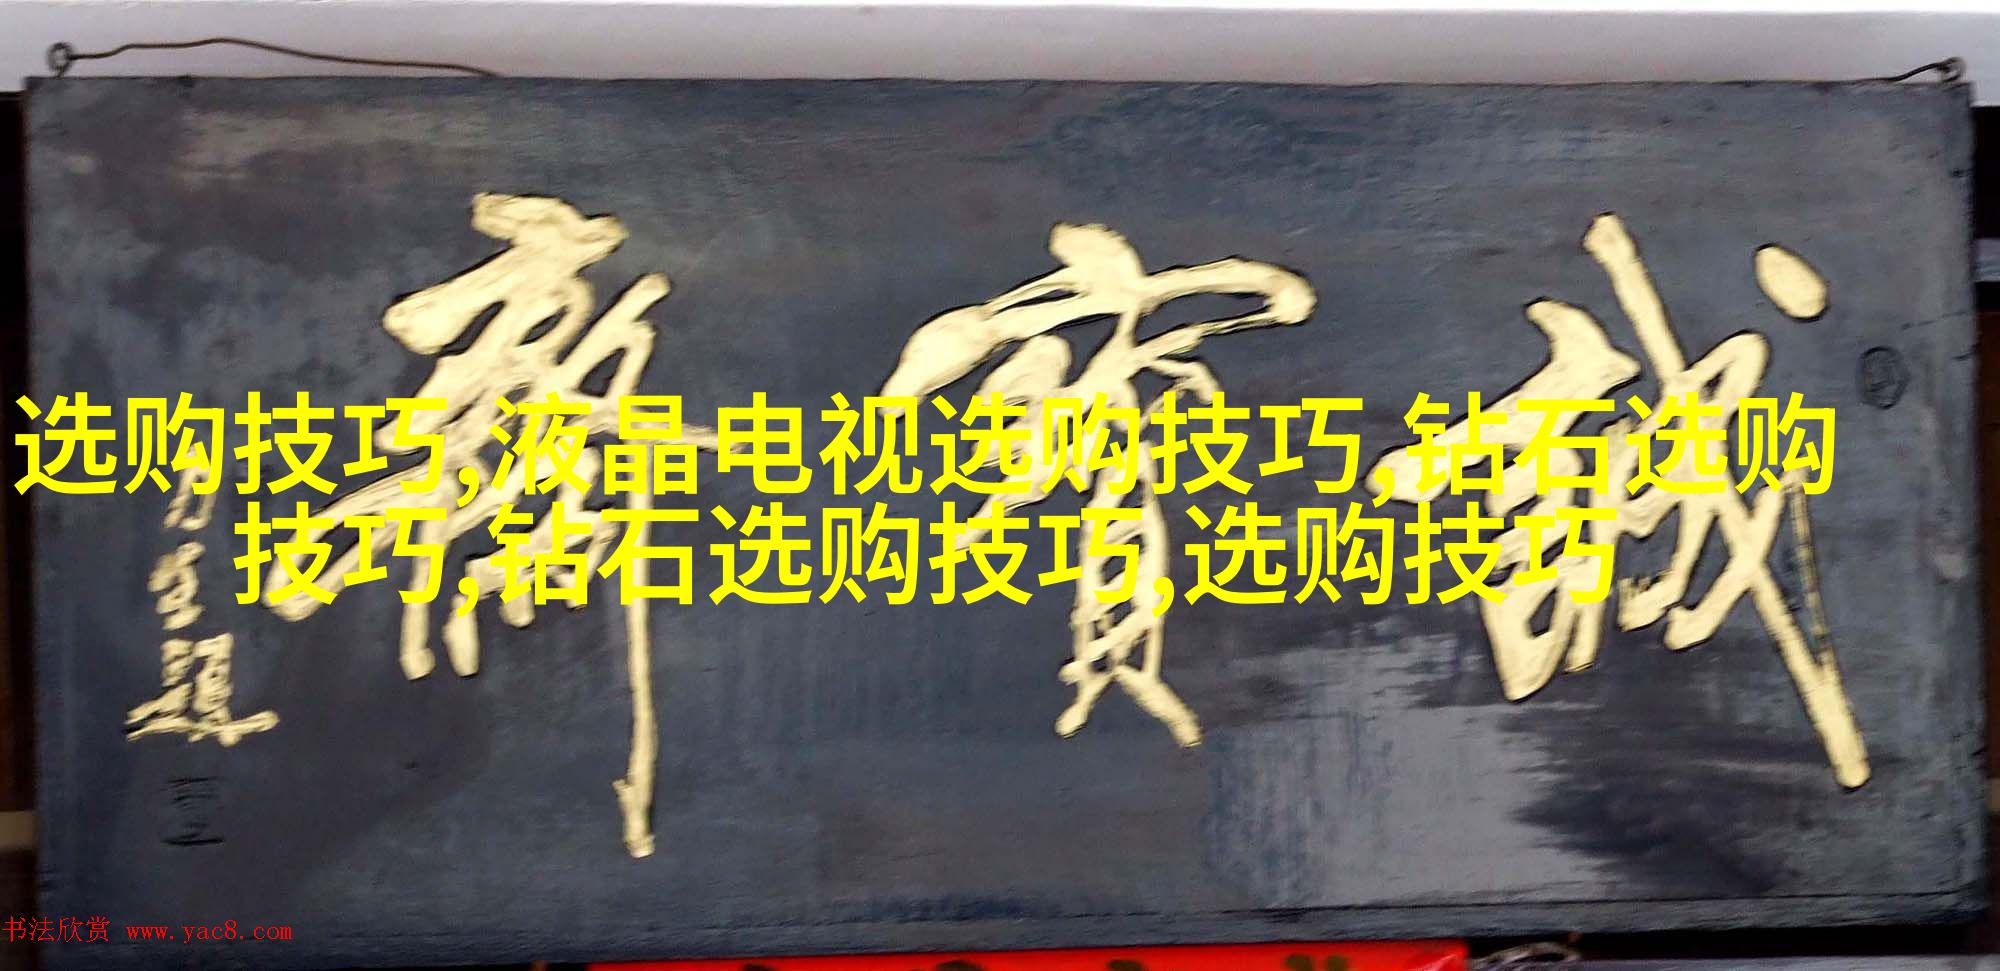 誠寳齋
選购技巧,液晶电视选购技巧,钻石选购
技巧,钻石选购技巧,选购技巧
书法欣赏 www.yac8.com